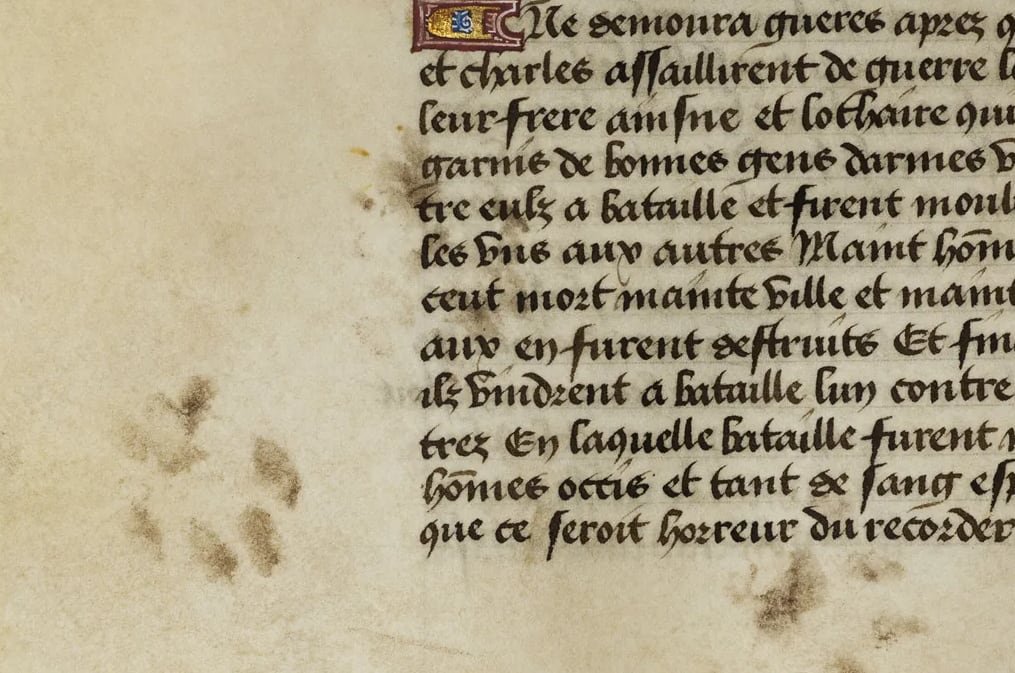 Ne demoura gueres aprez q
et charles assaillirent de guerre le
leur frere ainsne et lothaire qui
garnis de bonnes gens darmes v
tre eulz a bataille et firent moul
les vns aux autres Maint hōm
ceut mort mainte ville et maint
aux en furent destruits Et fin
ilz vindrent a bataille lun contre
trez En laquelle bataille furent
hōmes occis et tant de sang esp
que ce seroit horreur du recorder